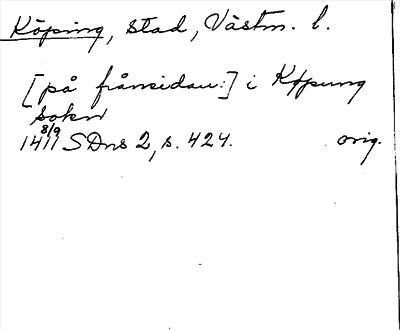 Köping, stad, Västm. l.
[på frånsidan:] i Køpung
sokn
8/9
1411 SDns 2, s. 424. orig.